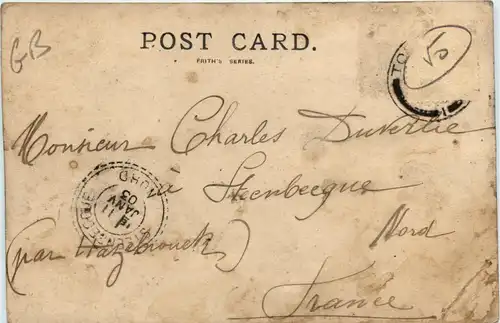 GB
POST CARD.
FAITH'S SERIES.
TO
50
Monsieur Charles Duverlie
à Steenbecque
Nord
(par Hazebrouck)
France
NORD
11
JANV
05